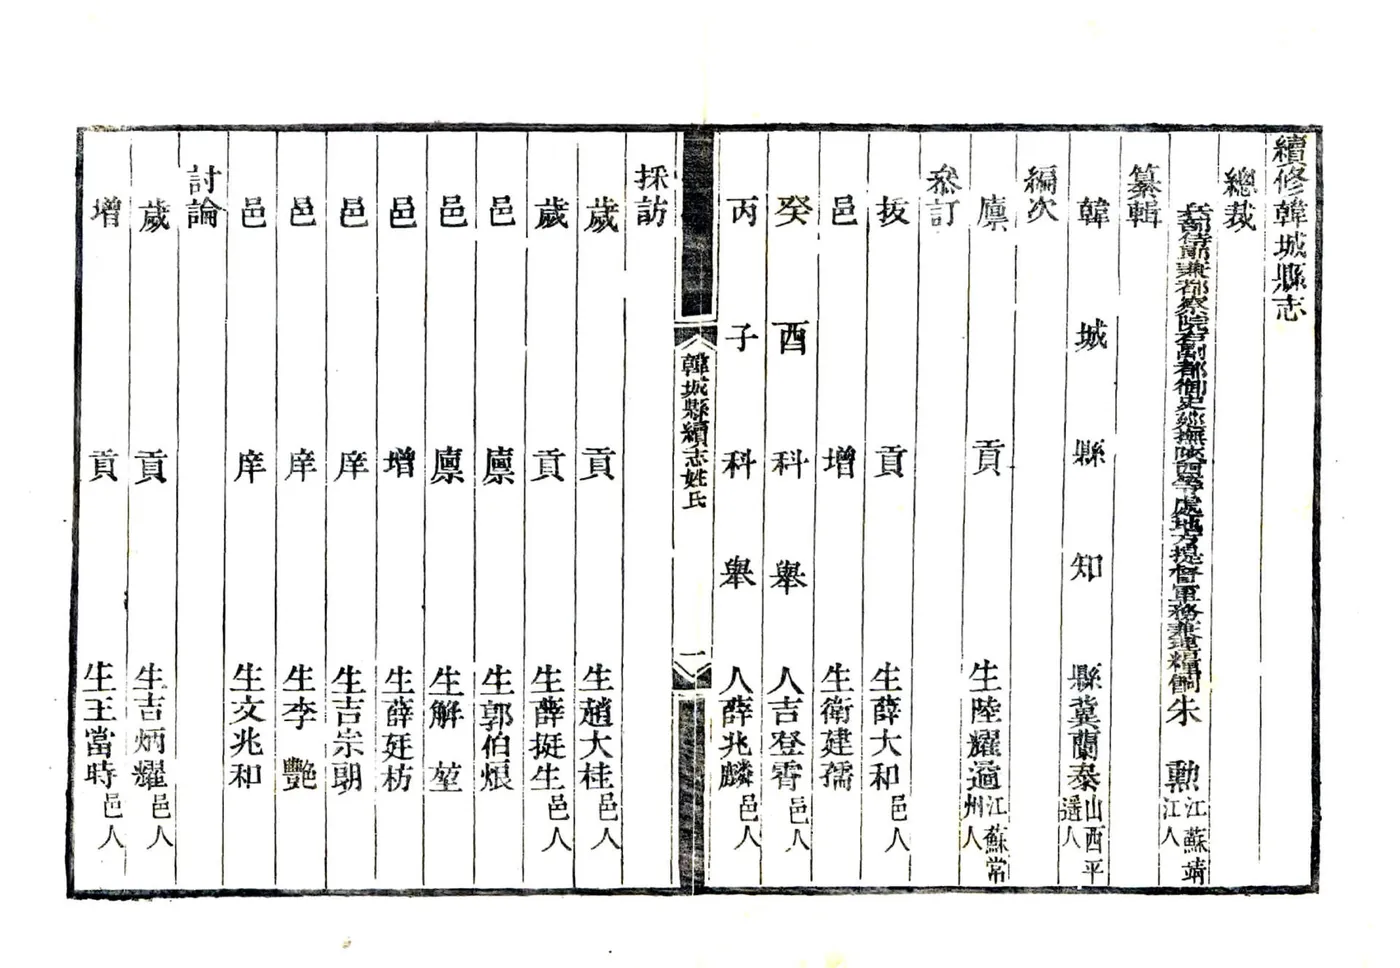 續修韓城縣志
總裁
兵部侍郎兼都察院右副都御史巡撫陝西等處地方提督軍務兼理糧餉朱勲江蘇靖江人
纂輯
韓城縣知縣冀蘭泰山西平遥人
編次
廪貢生陸耀遹江蘇常州人
叅訂
拔貢生薛大和邑人
邑增生衛建孺
癸酉科舉人吉登霄邑人
丙子科舉人薛兆麟邑人
韓城縣續志姓氏
一
採訪
歲貢生趙大桂邑人
歲貢生薛挺生邑人
邑廪生郭伯烺
邑廪生解堃
邑增生薛廷枋
邑庠生吉崇頣
邑庠生李艷
邑庠生文兆和
討論
歲貢生吉炳耀邑人
增貢生王當時邑人